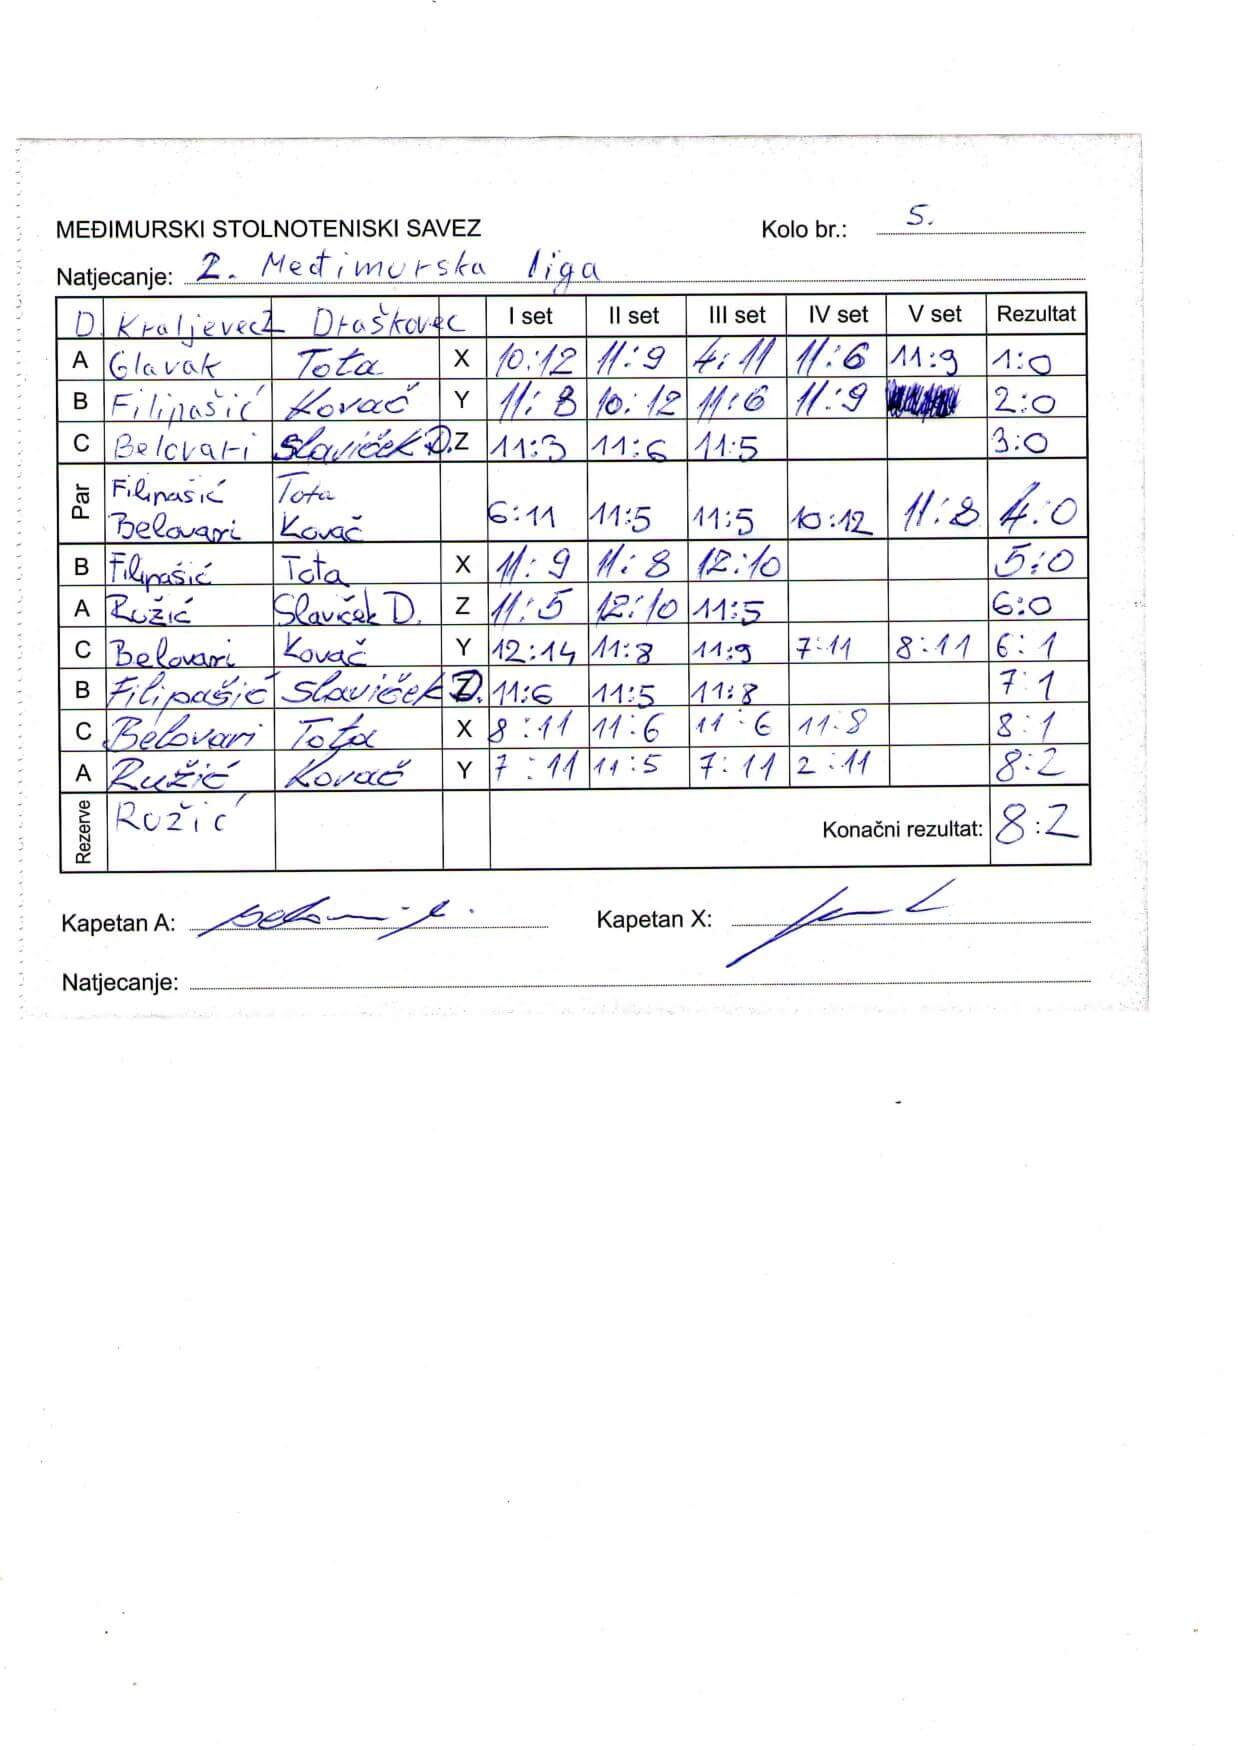 MEĐIMURSKI STOLNOTENISKI SAVEZ Kolo br.: 5.
Natjecanje: 2. Međimurska liga
D. Kraljevec 2 Draškovec I set II set III set IV set V set Rezultat
A Glavak Tota X 10:12 11:9 4:11 11:6 11:9 1:0
B Filipašić Kovač Y 11:8 10:12 11:6 11:9 2:0
C Belovari Slaviček D. Z 11:3 11:6 11:5 3:0
Par Filipašić Tota
Belovari Kovač 6:11 11:5 11:5 10:12 11:8 4:0
B Filipašić Tota X 11:9 11:8 12:10 5:0
A Ružić Slaviček D. Z 11:5 12:10 11:5 6:0
C Belovari Kovač Y 12:14 11:8 11:9 7:11 8:11 6:1
B Filipašić Slaviček D. Z 11:6 11:5 11:8 7:1
C Belovari Tota X 8:11 11:6 11:6 11:8 8:1
A Ružić Kovač Y 7:11 11:5 7:11 2:11 8:2
Rezerve Ružić Konačni rezultat: 8:2
Kapetan A: Kapetan X:
Natjecanje: